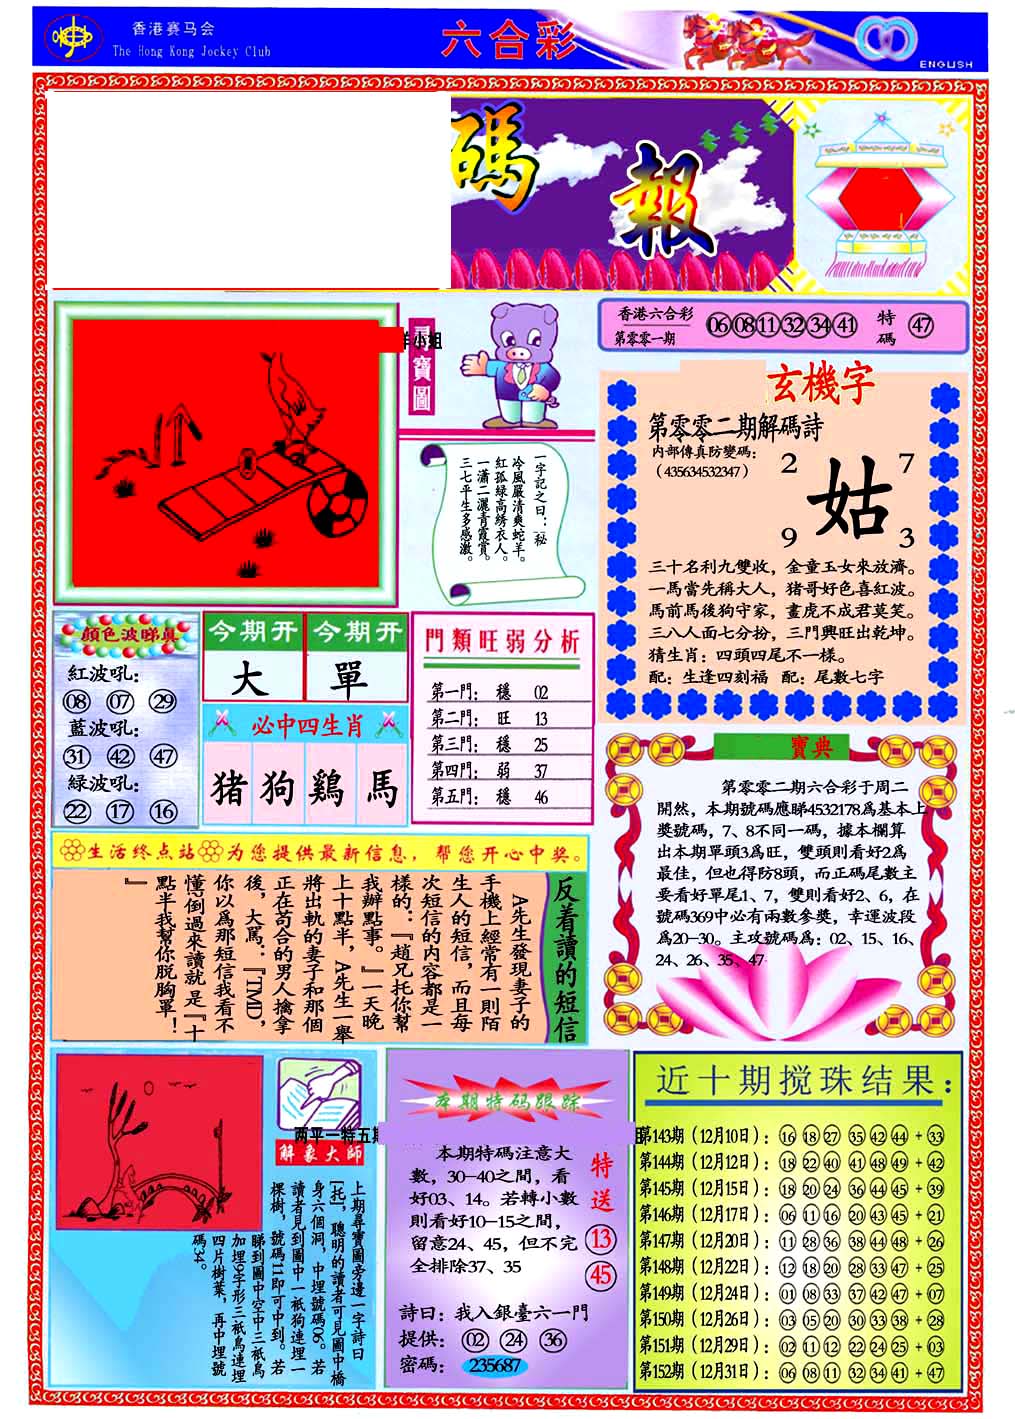 香港赛马会
The Hong Kong Jockey Club
六合彩
ENGLISH
碼報
香港六合彩
第零零一期
06 08 11 32 34 41
特碼
47
尋寶圖
小姐
一字記之曰：秘
冷風嚴清爽蛇羊。
紅孤綠高綉衣人。
一瀟二灑青霞賞。
三七平生多感激。
玄機字
第零零二期解碼詩
内部傳真防變碼：
（435634532347）
2 7
姑
9 3
三十名利九雙收，金童玉女來放濟。
一馬當先稱大人，猪哥好色喜紅波。
馬前馬後狗守家，畫虎不成君莫笑。
三八人面七分扮，三門興旺出乾坤。
猜生肖：四頭四尾不一樣。
配：生逢四刻福 配：尾數七字
顔色波睇真
紅波吼：
08 07 29
藍波吼：
31 42 47
緑波吼：
22 17 16
今期开 今期开
大 單
必中四生肖
猪 狗 鷄 馬
門類旺弱分析
第一門： 穩 02
第二門： 旺 13
第三門： 穩 25
第四門： 弱 37
第五門： 穩 46
寶典
第零零二期六合彩于周二
開然，本期號碼應睇4532178爲基本上
獎號碼，7、8不同一碼，據本欄算
出本期單頭3爲旺，雙頭則看好2爲
最佳，但也得防8頭，而正碼尾數主
要看好單尾1、7，雙則看好2、6，在
號碼369中必有兩數參獎，幸運波段
爲20-30。主攻號碼爲：02、15、16、
24、26、35、47
生活终点站 为您提供最新信息，帮您开心中奖。
反着讀的短信
A先生發現妻子的
手機上經常有一則陌
生人的短信，而且每
次短信的内容都是一
樣的：『趙兄托你幫
我辦點事。』一天晚
上十點半，A先生一舉
將出軌的妻子和那個
正在苟合的男人擒拿
後，大罵：『TMD，
你以爲那短信我看不
懂！倒過來讀就是『十
點半我幫你脱胸罩！
』
两平一特五期
解象大師
上期尋寶圖旁邊一字詩曰
[托]，聰明的讀者可見圖中橋
身六個洞，中埋號碼06。若
讀者見到圖中一衹狗連埋一
棵樹，號碼11即可中到。若
睇到圖中空中三衹鳥
加埋9字形三衹鳥連埋
四片樹葉，再中埋號
碼34。
本期特码跟踪
本期特碼注意大
數，30-40之間，看
好03、14。若轉小數
則看好10-15之間，
留意24、45，但不完
全排除37、35
特送
13
45
詩曰：我入銀臺六一門
提供： 02 24 36
密碼： 235687
近十期搅珠结果：
第143期（12月10日）：16 18 27 35 42 44 + 33
第144期（12月12日）：18 22 40 41 48 49 + 42
第145期（12月15日）：18 20 24 36 44 45 + 39
第146期（12月17日）：06 11 16 20 43 45 + 21
第147期（12月20日）：11 28 36 38 44 48 + 26
第148期（12月22日）：12 18 20 28 33 47 + 25
第149期（12月24日）：01 08 33 37 42 47 + 07
第150期（12月26日）：03 05 20 30 33 38 + 28
第151期（12月29日）：02 11 12 22 24 25 + 03
第152期（12月31日）：06 08 11 32 34 41 + 47